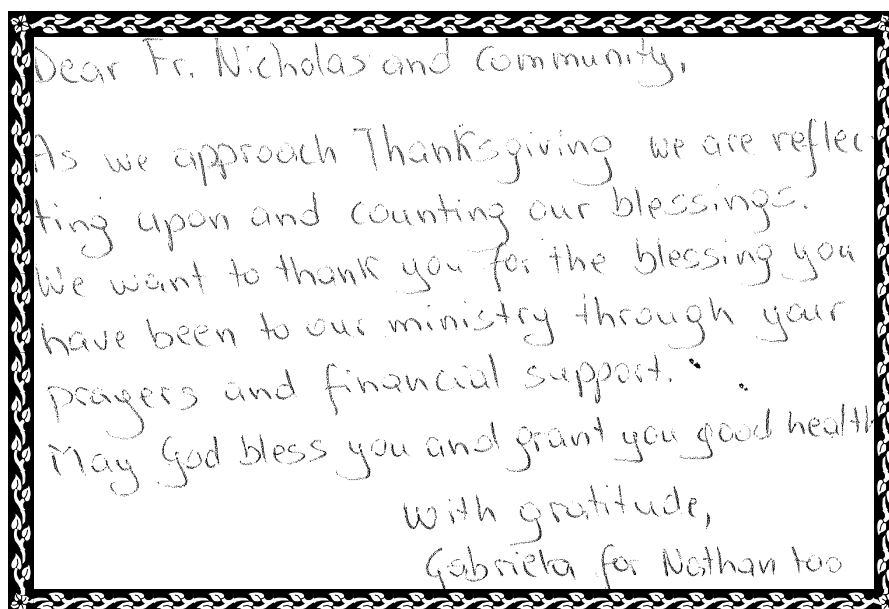 Dear Fr. Nicholas and community,
As we approach Thanksgiving we are reflec-
ting upon and counting our blessings.
We want to thank you for the blessing you
have been to our ministry through your
prayers and financial support.
May God bless you and grant you good health
With gratitude,
Gabriela for Nathan too